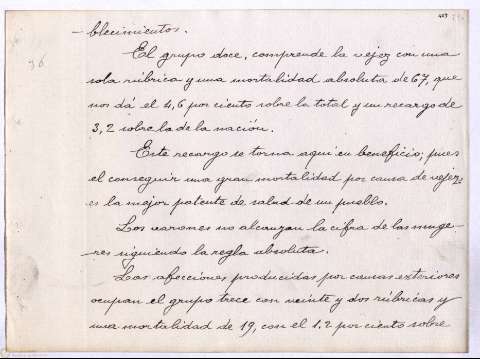 blecimientos.
El grupo doce, comprende la vejez con una
sola rúbrica y una mortalidad absoluta de 67, que
nos dá el 4,6 por ciento sobre la total y un recargo de
3,2 sobre la de la nación.
Este recargo se torna aqui en beneficio, pues
el conseguir una gran mortalidad por causa de vejez,
es la mejor patente de salud de un pueblo.
Los varones no alcanzan la cifra de las muge-
res siguiendo la regla absoluta.
Las afecciones producidas por causas exteriores
ocupan el grupo trece con veinte y dos rúbricas y
una mortalidad de 19, con el 1,2 por ciento sobre